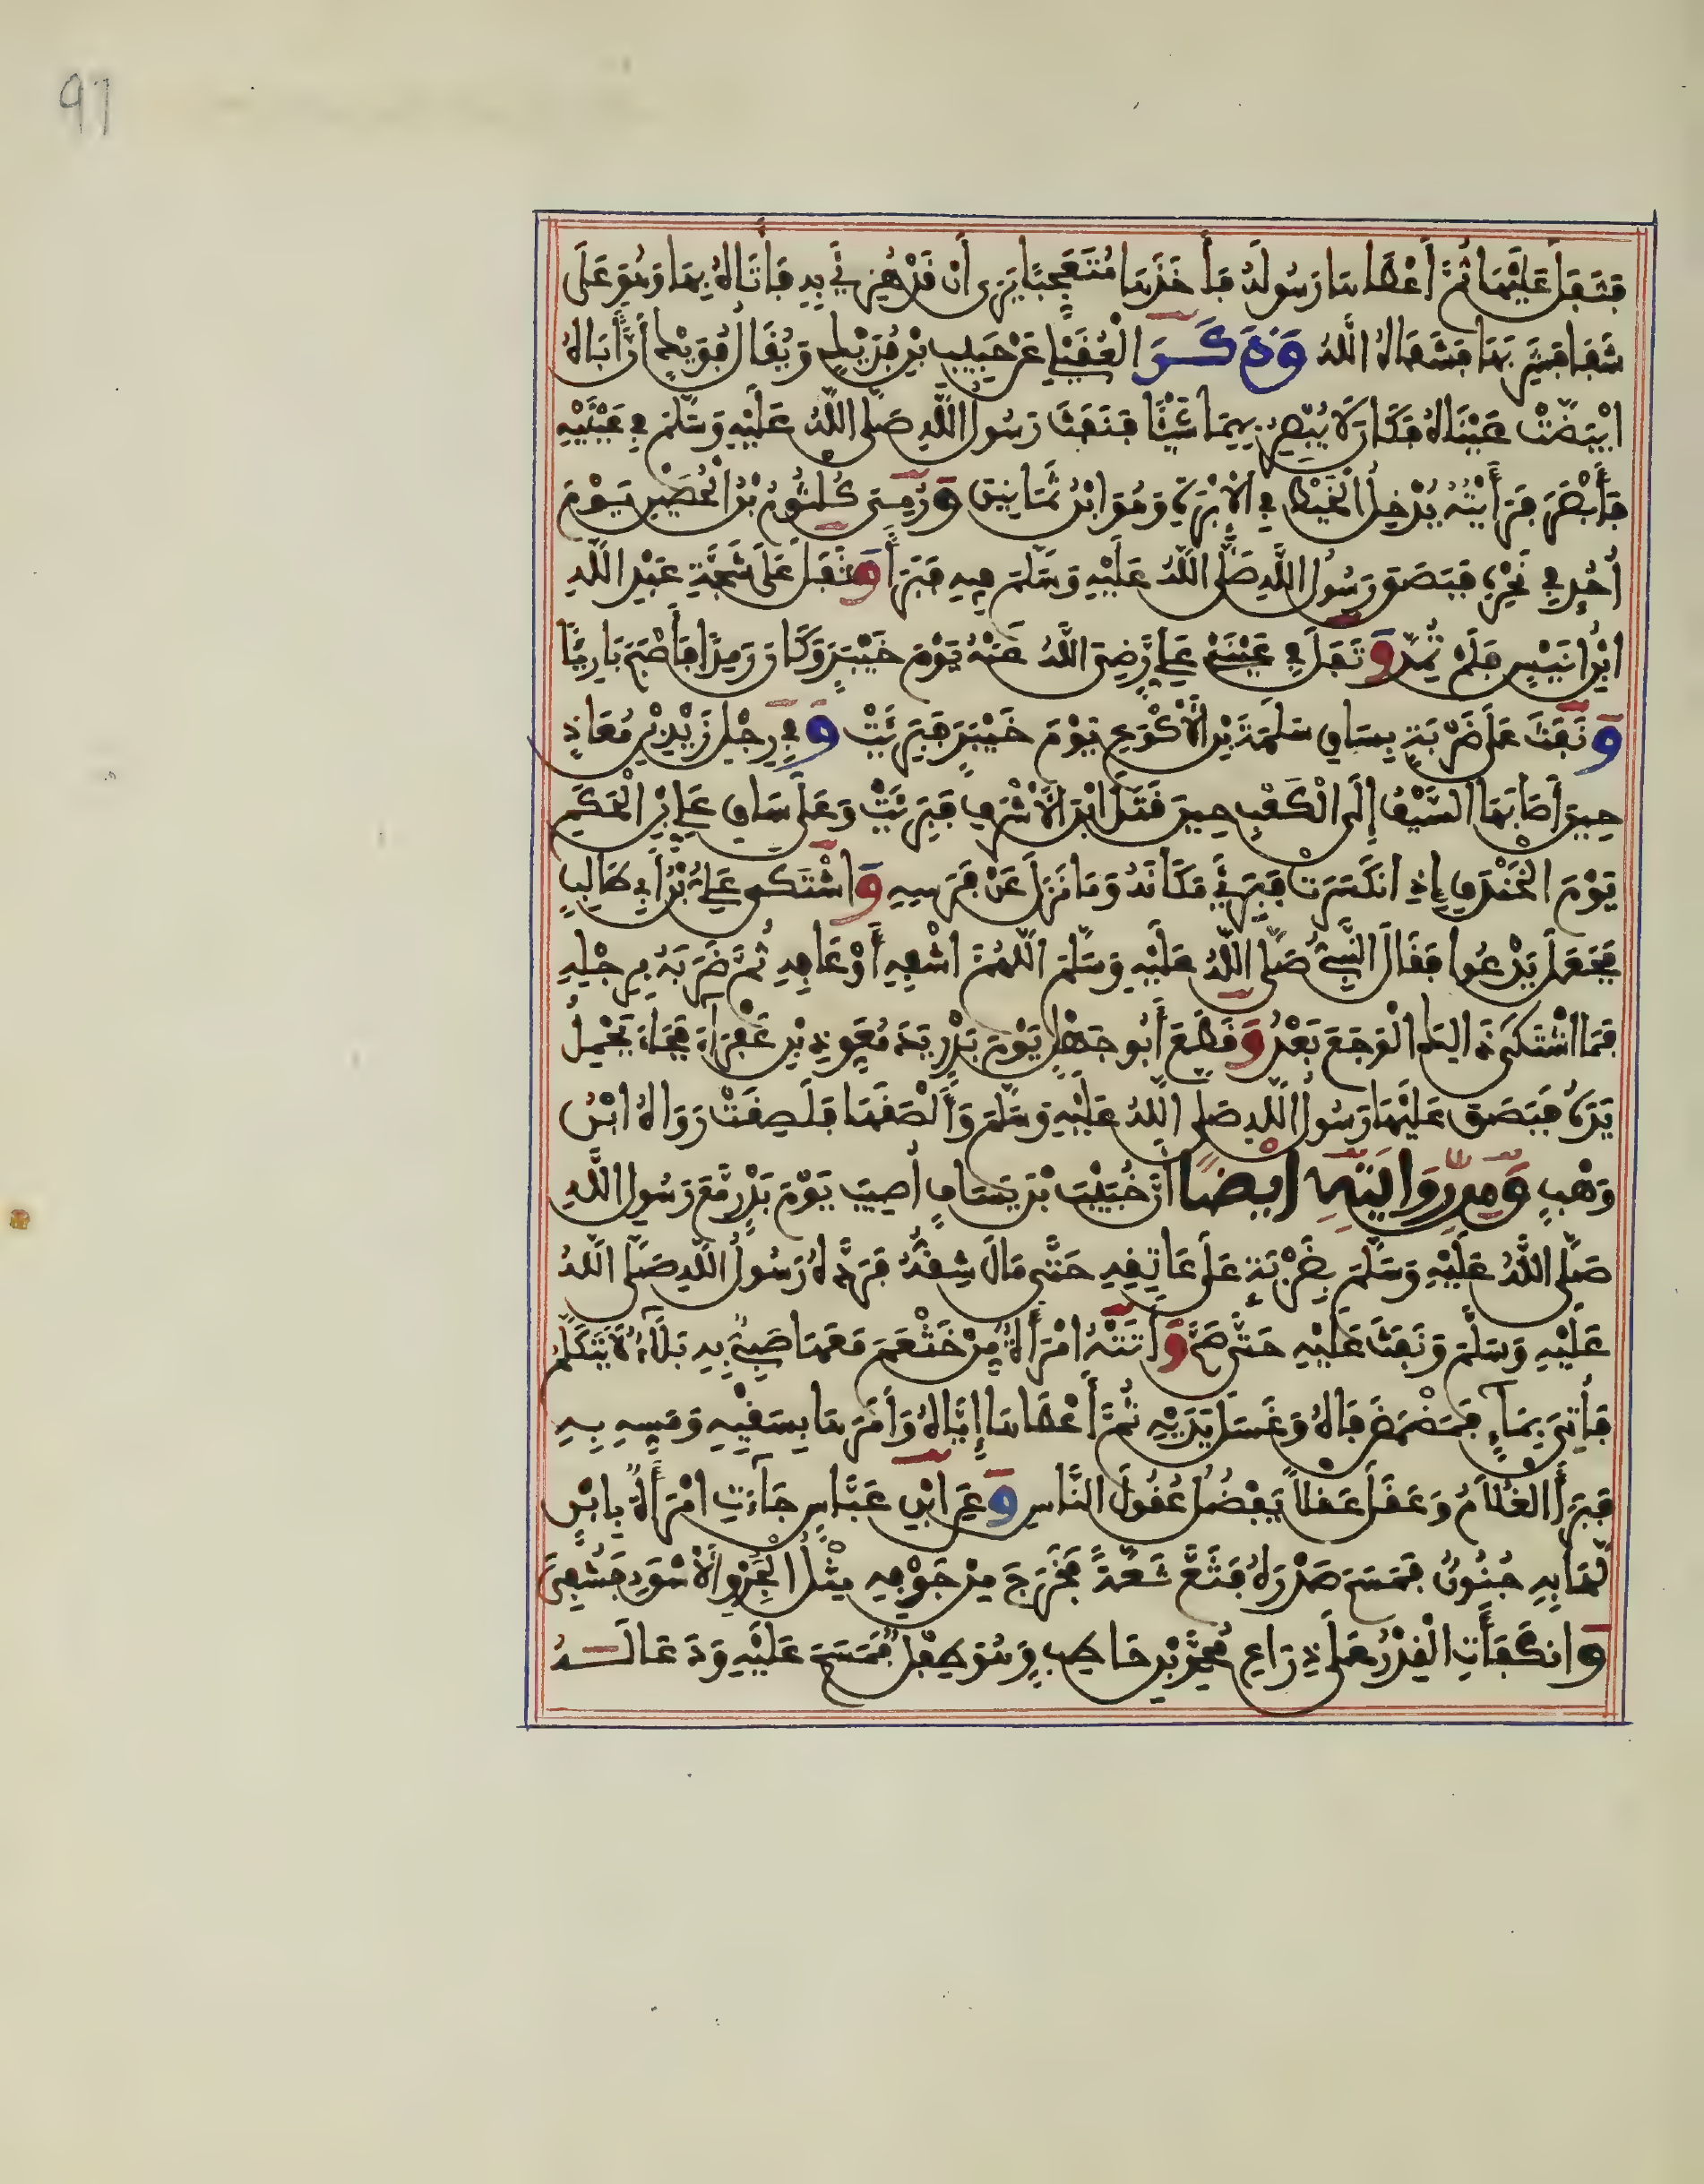 97
فَتَفَلَ عَلَيْهَا ثُمَّ أَعْطَاهَا رَسُولَهُ فَأَخَذَهَا مُتَعَجِّبًا يَرَى أَنْ قَدْ هُزِئَ بِهِ فَأَتَاهُ بِهَا وَهُوَ عَلَى
شَفَا فَشَرِبَهَا فَشَفَاهُ اللَّهُ وَذَكَرَ الْعُقَيْلِي عَنْ حَبِيبِ بْنِ فُدَيْكٍ وَيُقَالُ فُوَيْكٍ أَنَّ أَبَاهُ
ابْيَضَّتْ عَيْنَاهُ فَكَانَ لَا يُبْصِرُ بِهِمَا شَيْئًا فَنَفَثَ رَسُولُ اللَّهِ صَلَّى اللَّهُ عَلَيْهِ وَسَلَّمَ فِي عَيْنَيْهِ
فَأَبْصَرَ فَرَأَيْتُهُ يُدْخِلُ الْخَيْطَ فِي الْإِبْرَةِ وَهُوَ ابْنُ ثَمَانِينَ وَرُمِيَ كُلْثُومُ بْنُ الْحُصَيْنِ يَوْمَ
أُحُدٍ فِي نَحْرِهِ فَبَصَقَ رَسُولُ اللَّهِ صَلَّى اللَّهُ عَلَيْهِ وَسَلَّمَ فِيهِ فَبَرَأَ وَتَفَلَ عَلَى شَجَّةِ عَبْدِ اللَّهِ
ابْنِ أُنَيْسٍ فَلَمْ تُمِدَّ وَتَفَلَ فِي عَيْنَيْ عَلِيٍّ رَضِيَ اللَّهُ عَنْهُ يَوْمَ خَيْبَرَ وَكَانَ رَمِدًا فَأَصْبَحَ بَارِئًا
وَنَفَثَ عَلَى ضَرْبَةٍ بِسَاقِ سَلَمَةَ بْنِ الْأَكْوَعِ يَوْمَ خَيْبَرَ فَبَرِئَتْ وَفِي رِجْلِ زَيْدِ بْنِ مُعَاذٍ
حِينَ أَصَابَهَا السَّيْفُ إِلَى الْكَعْبِ حِينَ قَتَلَ ابْنَ الْأَشْرَفِ فَبَرِئَتْ وَعَلَى سَاقِ عَلِيِّ بْنِ الْحَكَمِ
يَوْمَ الْخَنْدَقِ إِذِ انْكَسَرَتْ فَبَرِئَ مَكَانَهُ وَمَا نَزَلَ عَنْ فَرَسِهِ وَاشْتَكَى عَلِيُّ بْنُ أَبِي طَالِبٍ
فَجَعَلَ يَدْعُوا فَقَالَ النَّبِيُّ صَلَّى اللَّهُ عَلَيْهِ وَسَلَّمَ اللَّهُمَّ اشْفِهِ أَوْ عَافِهِ ثُمَّ ضَرَبَهُ بِرِجْلِهِ
فَمَا اشْتَكَى ذَلِكَ الْوَجَعَ بَعْدُ وَقَطَعَ أَبُو جَهْلٍ يَوْمَ بَدْرٍ يَدَ مُعَوِّذِ بْنِ عَفْرَاءَ فَجَاءَ يَحْمِلُ
يَدَهُ فَبَصَقَ عَلَيْهَا رَسُولُ اللَّهِ صَلَّى اللَّهُ عَلَيْهِ وَسَلَّمَ وَأَلْصَقَهَا فَلَصِقَتْ رَوَاهُ ابْنُ
وَهْبٍ وَمِنْ رِوَايَتِهِ أَيْضًا أَنَّ خُبَيْبَ بْنَ يَسَافٍ أُصِيبَ يَوْمَ بَدْرٍ مَعَ رَسُولِ اللَّهِ
صَلَّى اللَّهُ عَلَيْهِ وَسَلَّمَ بِضَرْبَةٍ عَلَى عَاتِقِهِ حَتَّى مَالَ شِقُّهُ فَرَدَّهُ رَسُولُ اللَّهِ صَلَّى اللَّهُ
عَلَيْهِ وَسَلَّمَ وَنَفَثَ عَلَيْهِ حَتَّى صَحَّ وَأَتَتْهُ امْرَأَةٌ مِنْ خَثْعَمَ مَعَهَا صَبِيٌّ بِهِ بَلَاءٌ لَا يَتَكَلَّمُ
فَأُتِيَ بِمَاءٍ فَمَضْمَضَ فَاهُ وَغَسَلَ يَدَيْهِ ثُمَّ أَعْطَاهَا إِيَّاهُ وَأَمَرَهَا بِسَقْيِهِ وَمَسِّهِ بِهِ
فَبَرَأَ الْغُلَامُ وَعَقَلَ عَقْلًا يَفْضُلُ عُقُولَ النَّاسِ وَعَنِ ابْنِ عَبَّاسٍ جَاءَتِ امْرَأَةٌ بِابْنٍ
لَهَا بِهِ جُنُونٌ فَمَسَحَ صَدْرَهُ فَثَعَّ ثَعَّةً فَخَرَجَ مِنْ جَوْفِهِ مِثْلُ الْجَرْوِ الْأَسْوَدِ فَشُفِيَ
وَانْكَفَأَتِ الْقِدْرُ عَلَى ذِرَاعِ مُحَمَّدِ بْنِ حَاطِبٍ وَهُوَ طِفْلٌ فَمَسَحَ عَلَيْهِ وَدَعَا لَهُ